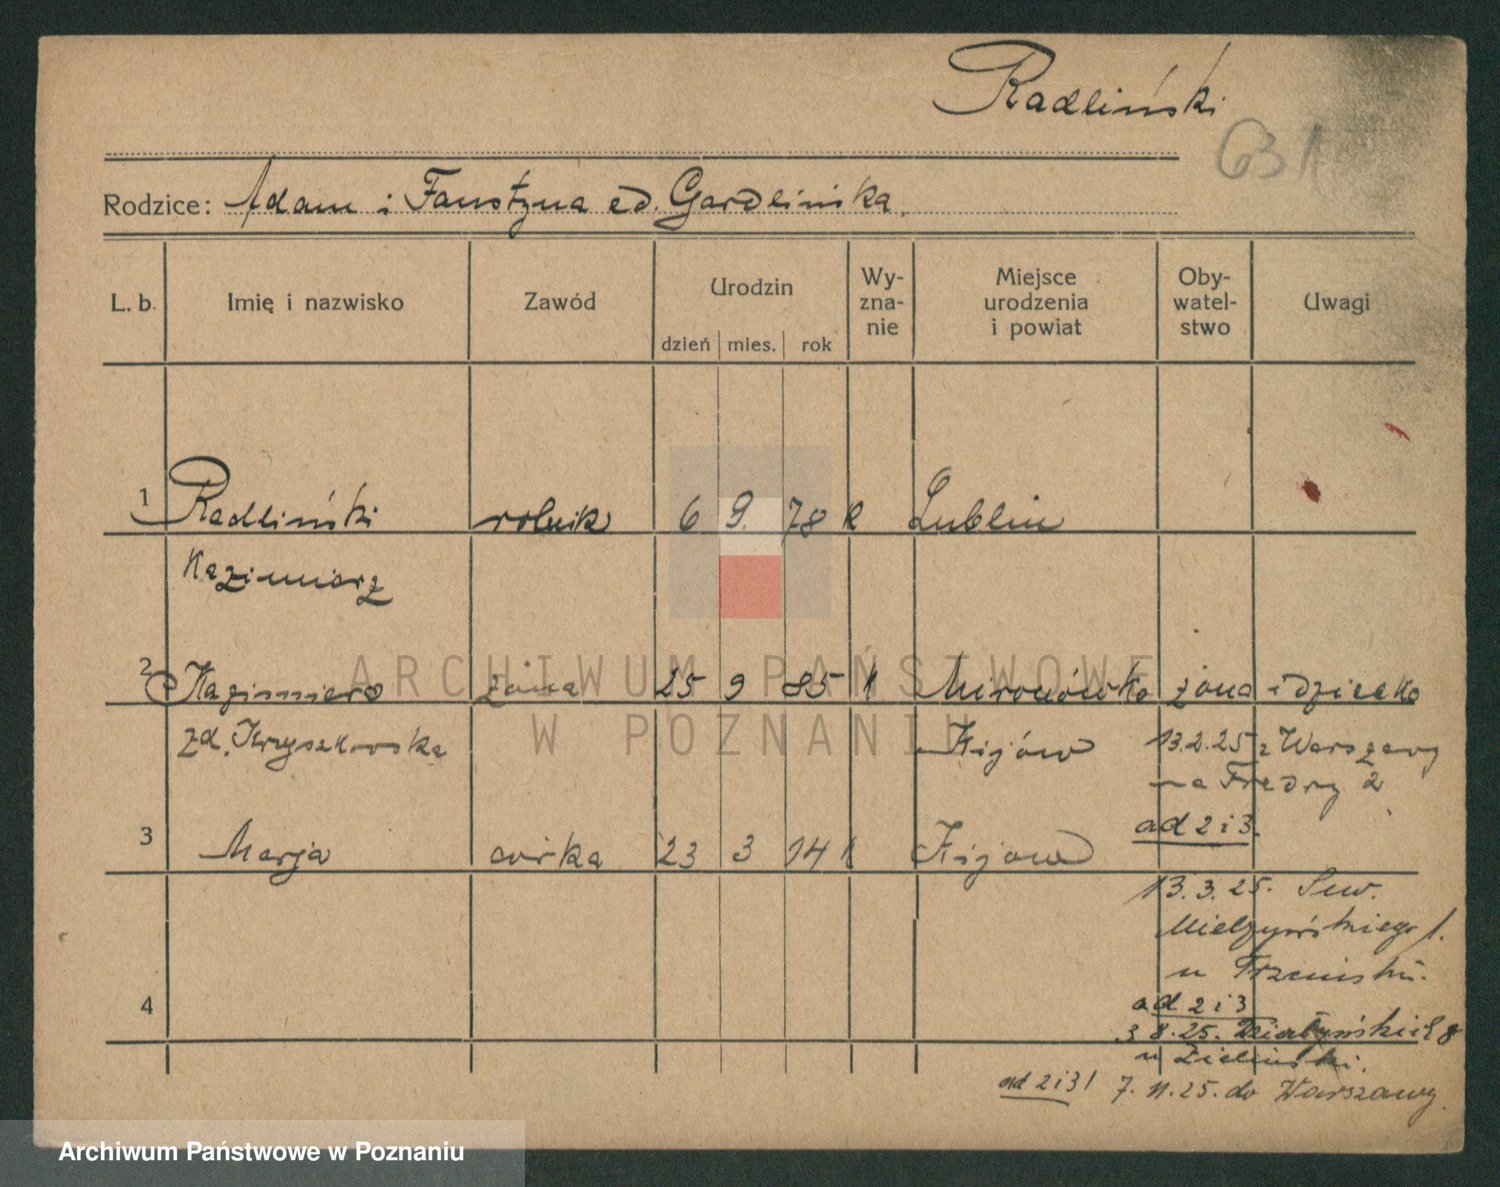 Radliński
631
Rodzice: Adam i Faustyna zd. Gardlińska.
L. b. Imię i nazwisko Zawód Urodzin dzień mies. rok Wy-zna-nie Miejsce urodzenia i powiat Oby-watel-stwo Uwagi
1 Radliński rolnik 6 9. 78 k Lublin
Kazimierz
2 Kazimiera żona 25 9 85 k Mironówka żona i dziecko
zd. Kryszkowska Kijów 13.2.25 z Warszawy
na Fredry 2
ad 2 i 3.
3 Marja córka 23 3 14 k Kijów
13.3.25. Sew.
Mielżyńskiego 1.
u
4
ad 2 i 3
3 8.25. Działyńskich 8
u Zieliński.
ad 2 i 3 / 7.11.25. do Warszawy
ARCHIWUM PAŃSTWOWE
W POZNANIU
Archiwum Państwowe w Poznaniu